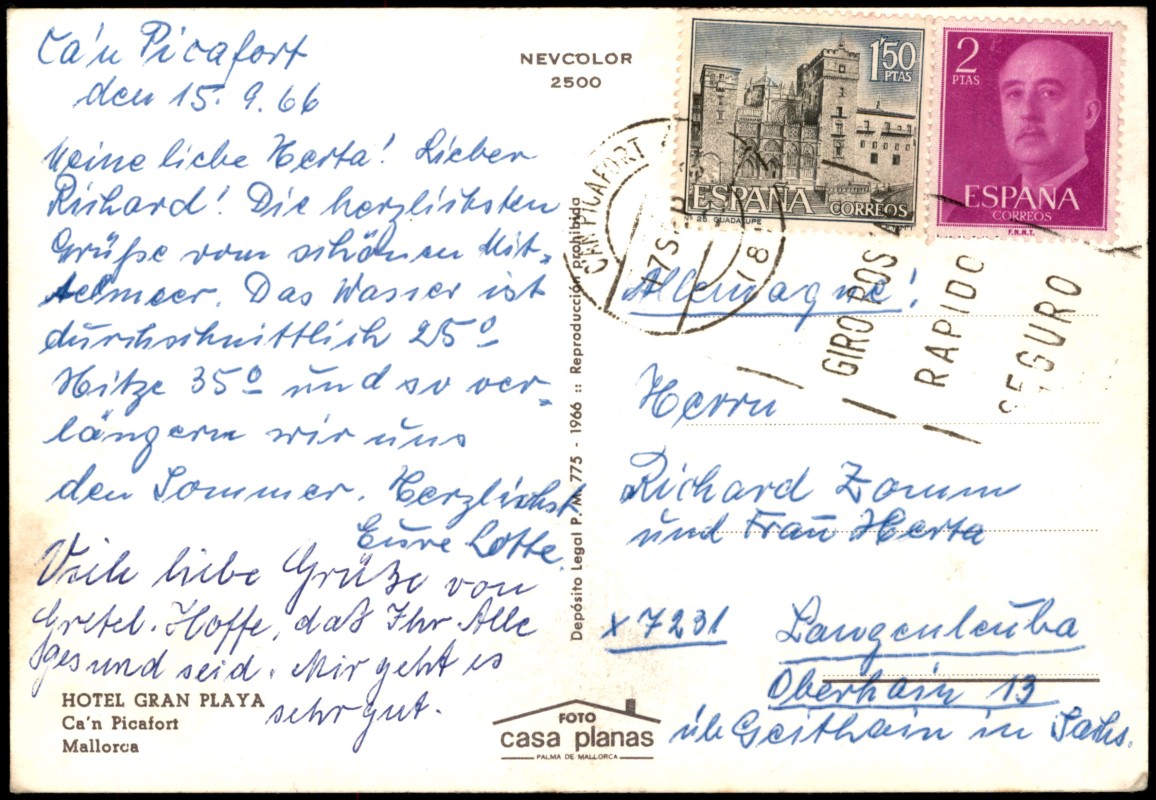 Ca'n Picafort
den 15. 9. 66
Meine liebe Herta! Lieber
Richard! Die herzlichsten
Grüße vom schönen Mit-
telmeer. Das Wasser ist
durchschnittlich 25º
Hitze 35º und so ver-
längern wir uns
den Sommer. Herzlichst
Eure Lotte.
Viele liebe Grüße von
Gretel. Hoffe, daß Ihr Alle
gesund seid. Mir geht es
sehr gut.
HOTEL GRAN PLAYA
Ca'n Picafort
Mallorca
NEVCOLOR
2500
Depósito Legal P. M. 775 - 1966 :: Reproducción prohibida
FOTO
casa planas
PALMA DE MALLORCA
1'50
PTAS
ESPAÑA
CORREOS
GUADALUPE
2
PTAS
ESPAÑA
CORREOS
F.N.M.T.
CAN PICAFORT
GIRO POS
RAPIDO
SEGURO
Allemagne!
Herrn
Richard Zomm
und Frau Herta
x 7231 Langenleuba
Oberhain 13
üb Geithain in Sachs.